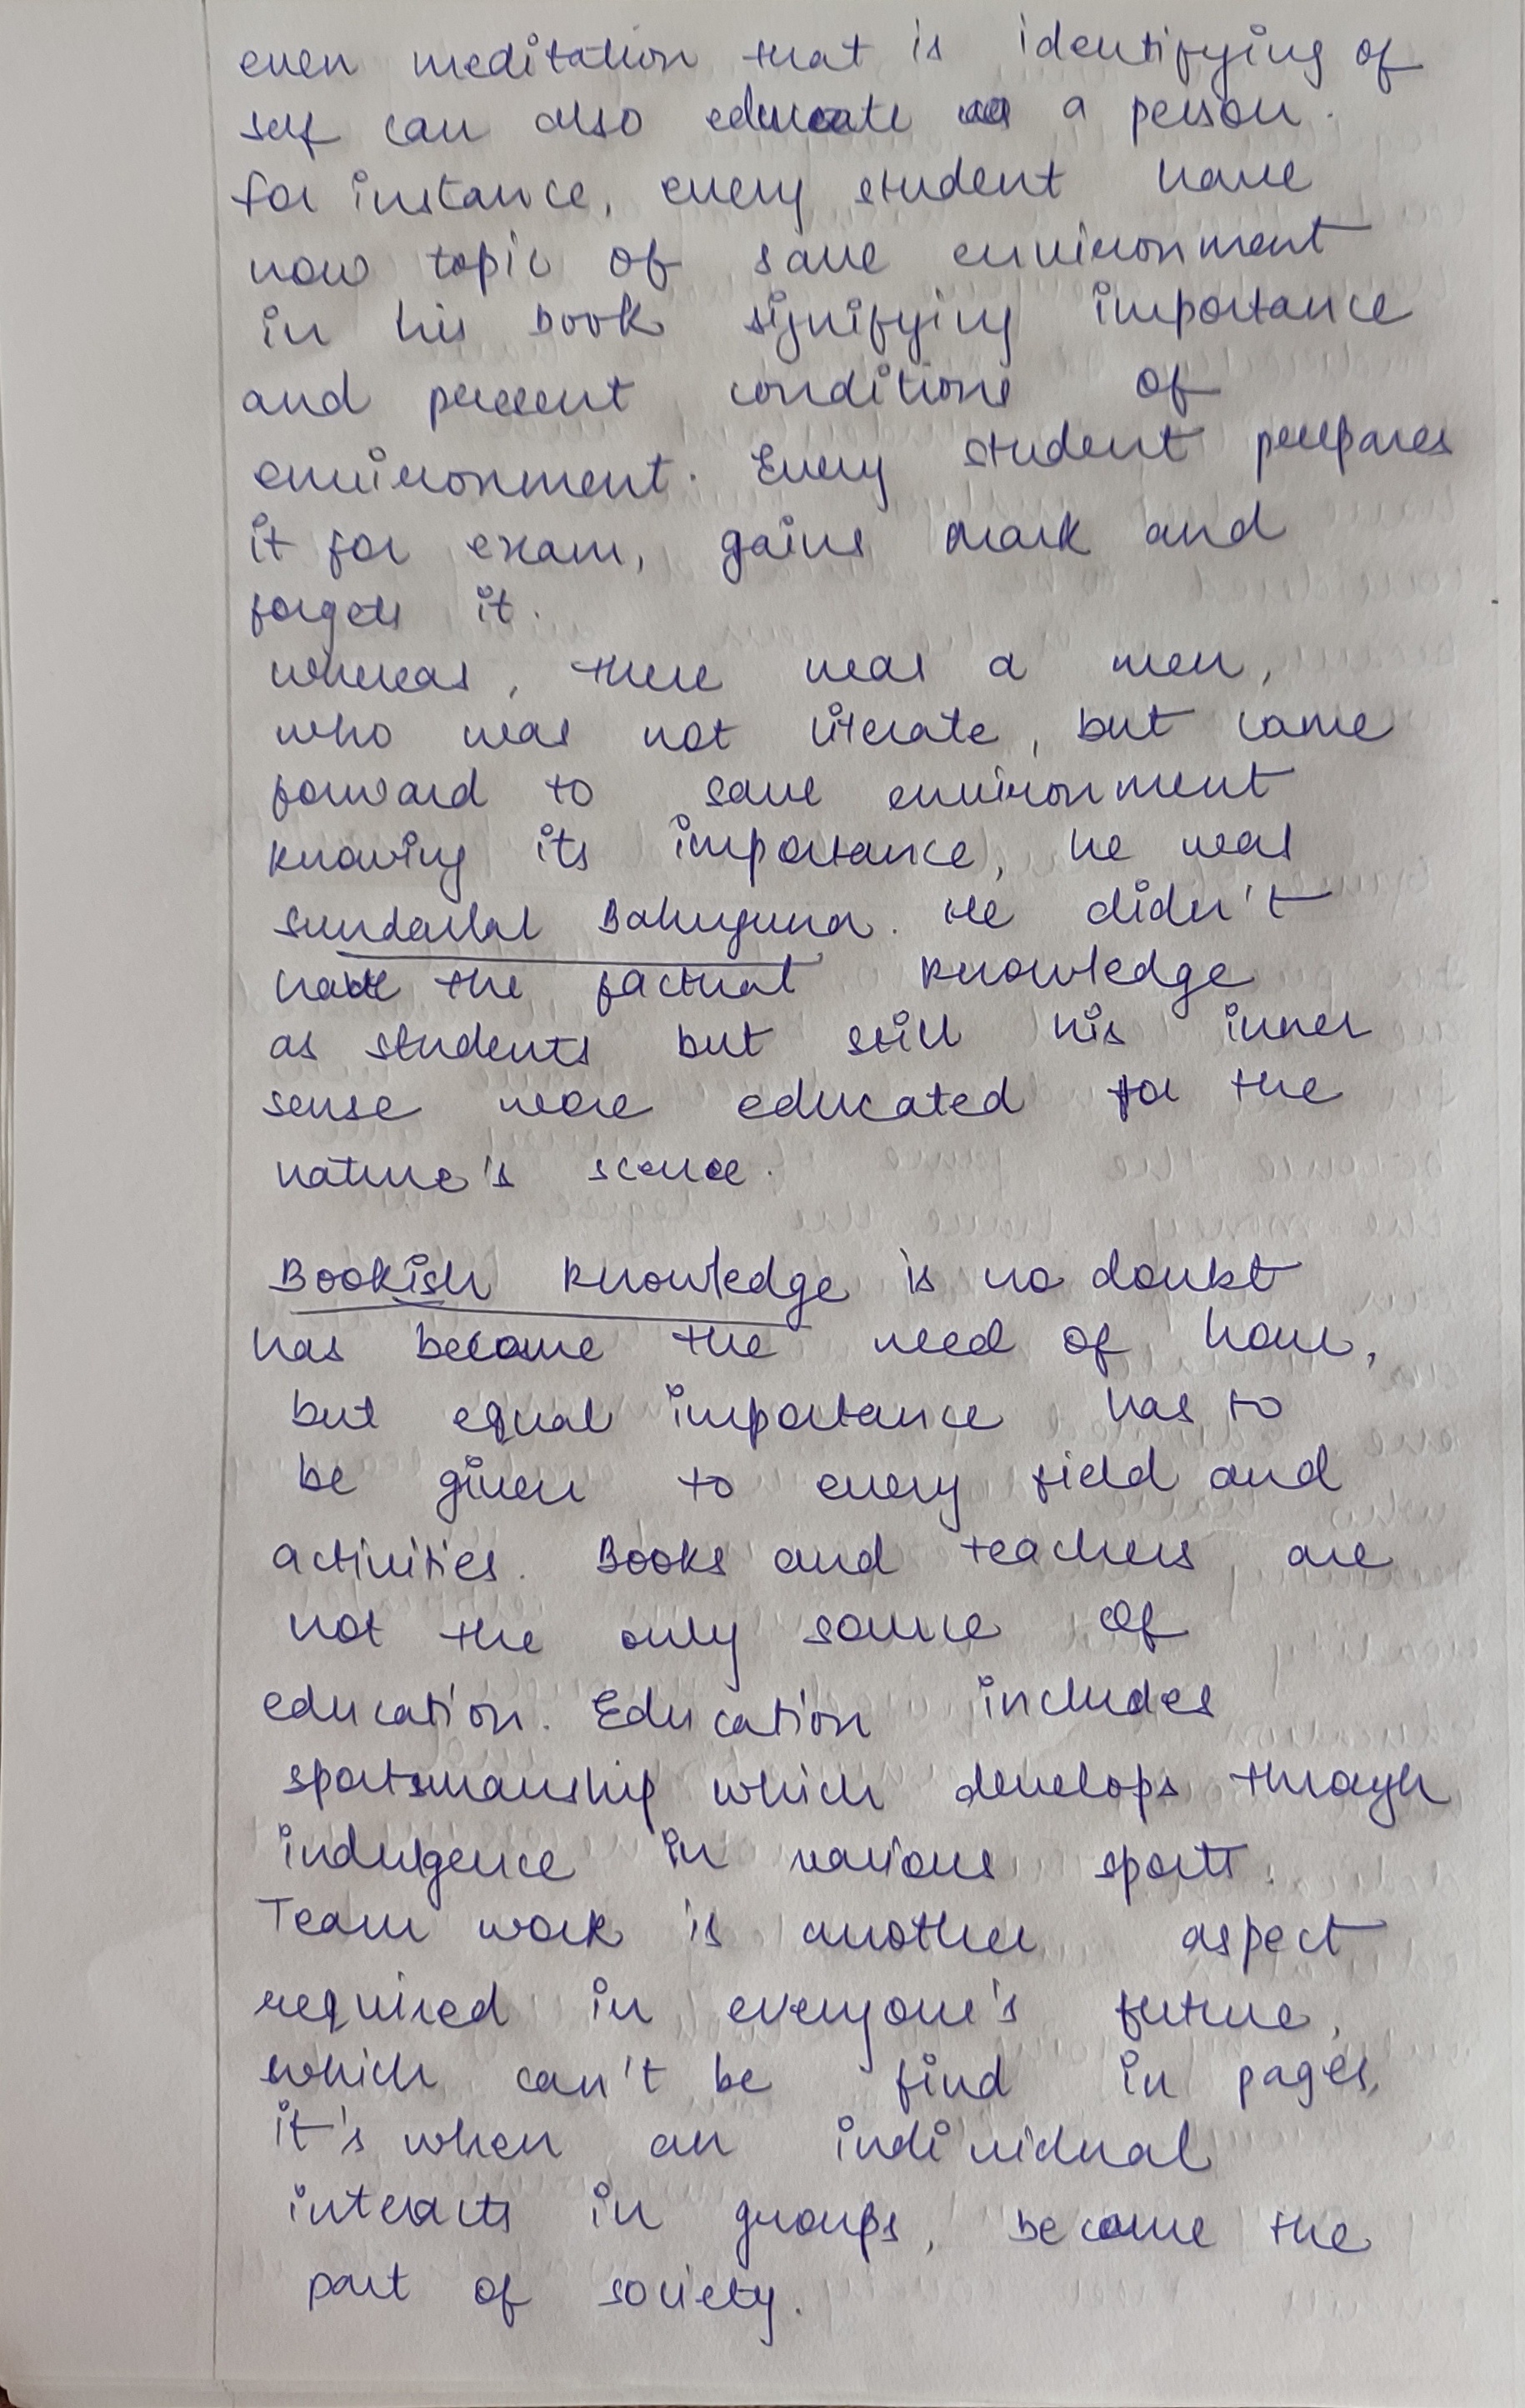 even meditation that is identifying of
self can also educate a person.
for instance, every student have
now topic of save environment
in his book signifying importance
and present conditions of
environment. Every student prepares
it for exam, gains mark and
forgets it.
whereas, there was a men,
who was not literate, but came
forward to save environment
knowing its importance, he was
Sundarlal Bahuguna. He didn't
have the factual knowledge
as students but still his inner
sense were educated for the
nature's scence.
Bookish knowledge is no doubt
has become the need of hour,
but equal importance has to
be given to every field and
activities. Books and teachers are
not the only source of
education. Education includes
sportsmanship which develops through
indulgence in various sports.
Team work is another aspect
required in everyone's future,
which can't be find in pages,
it's when an individual
interacts in groups, become the
part of society.